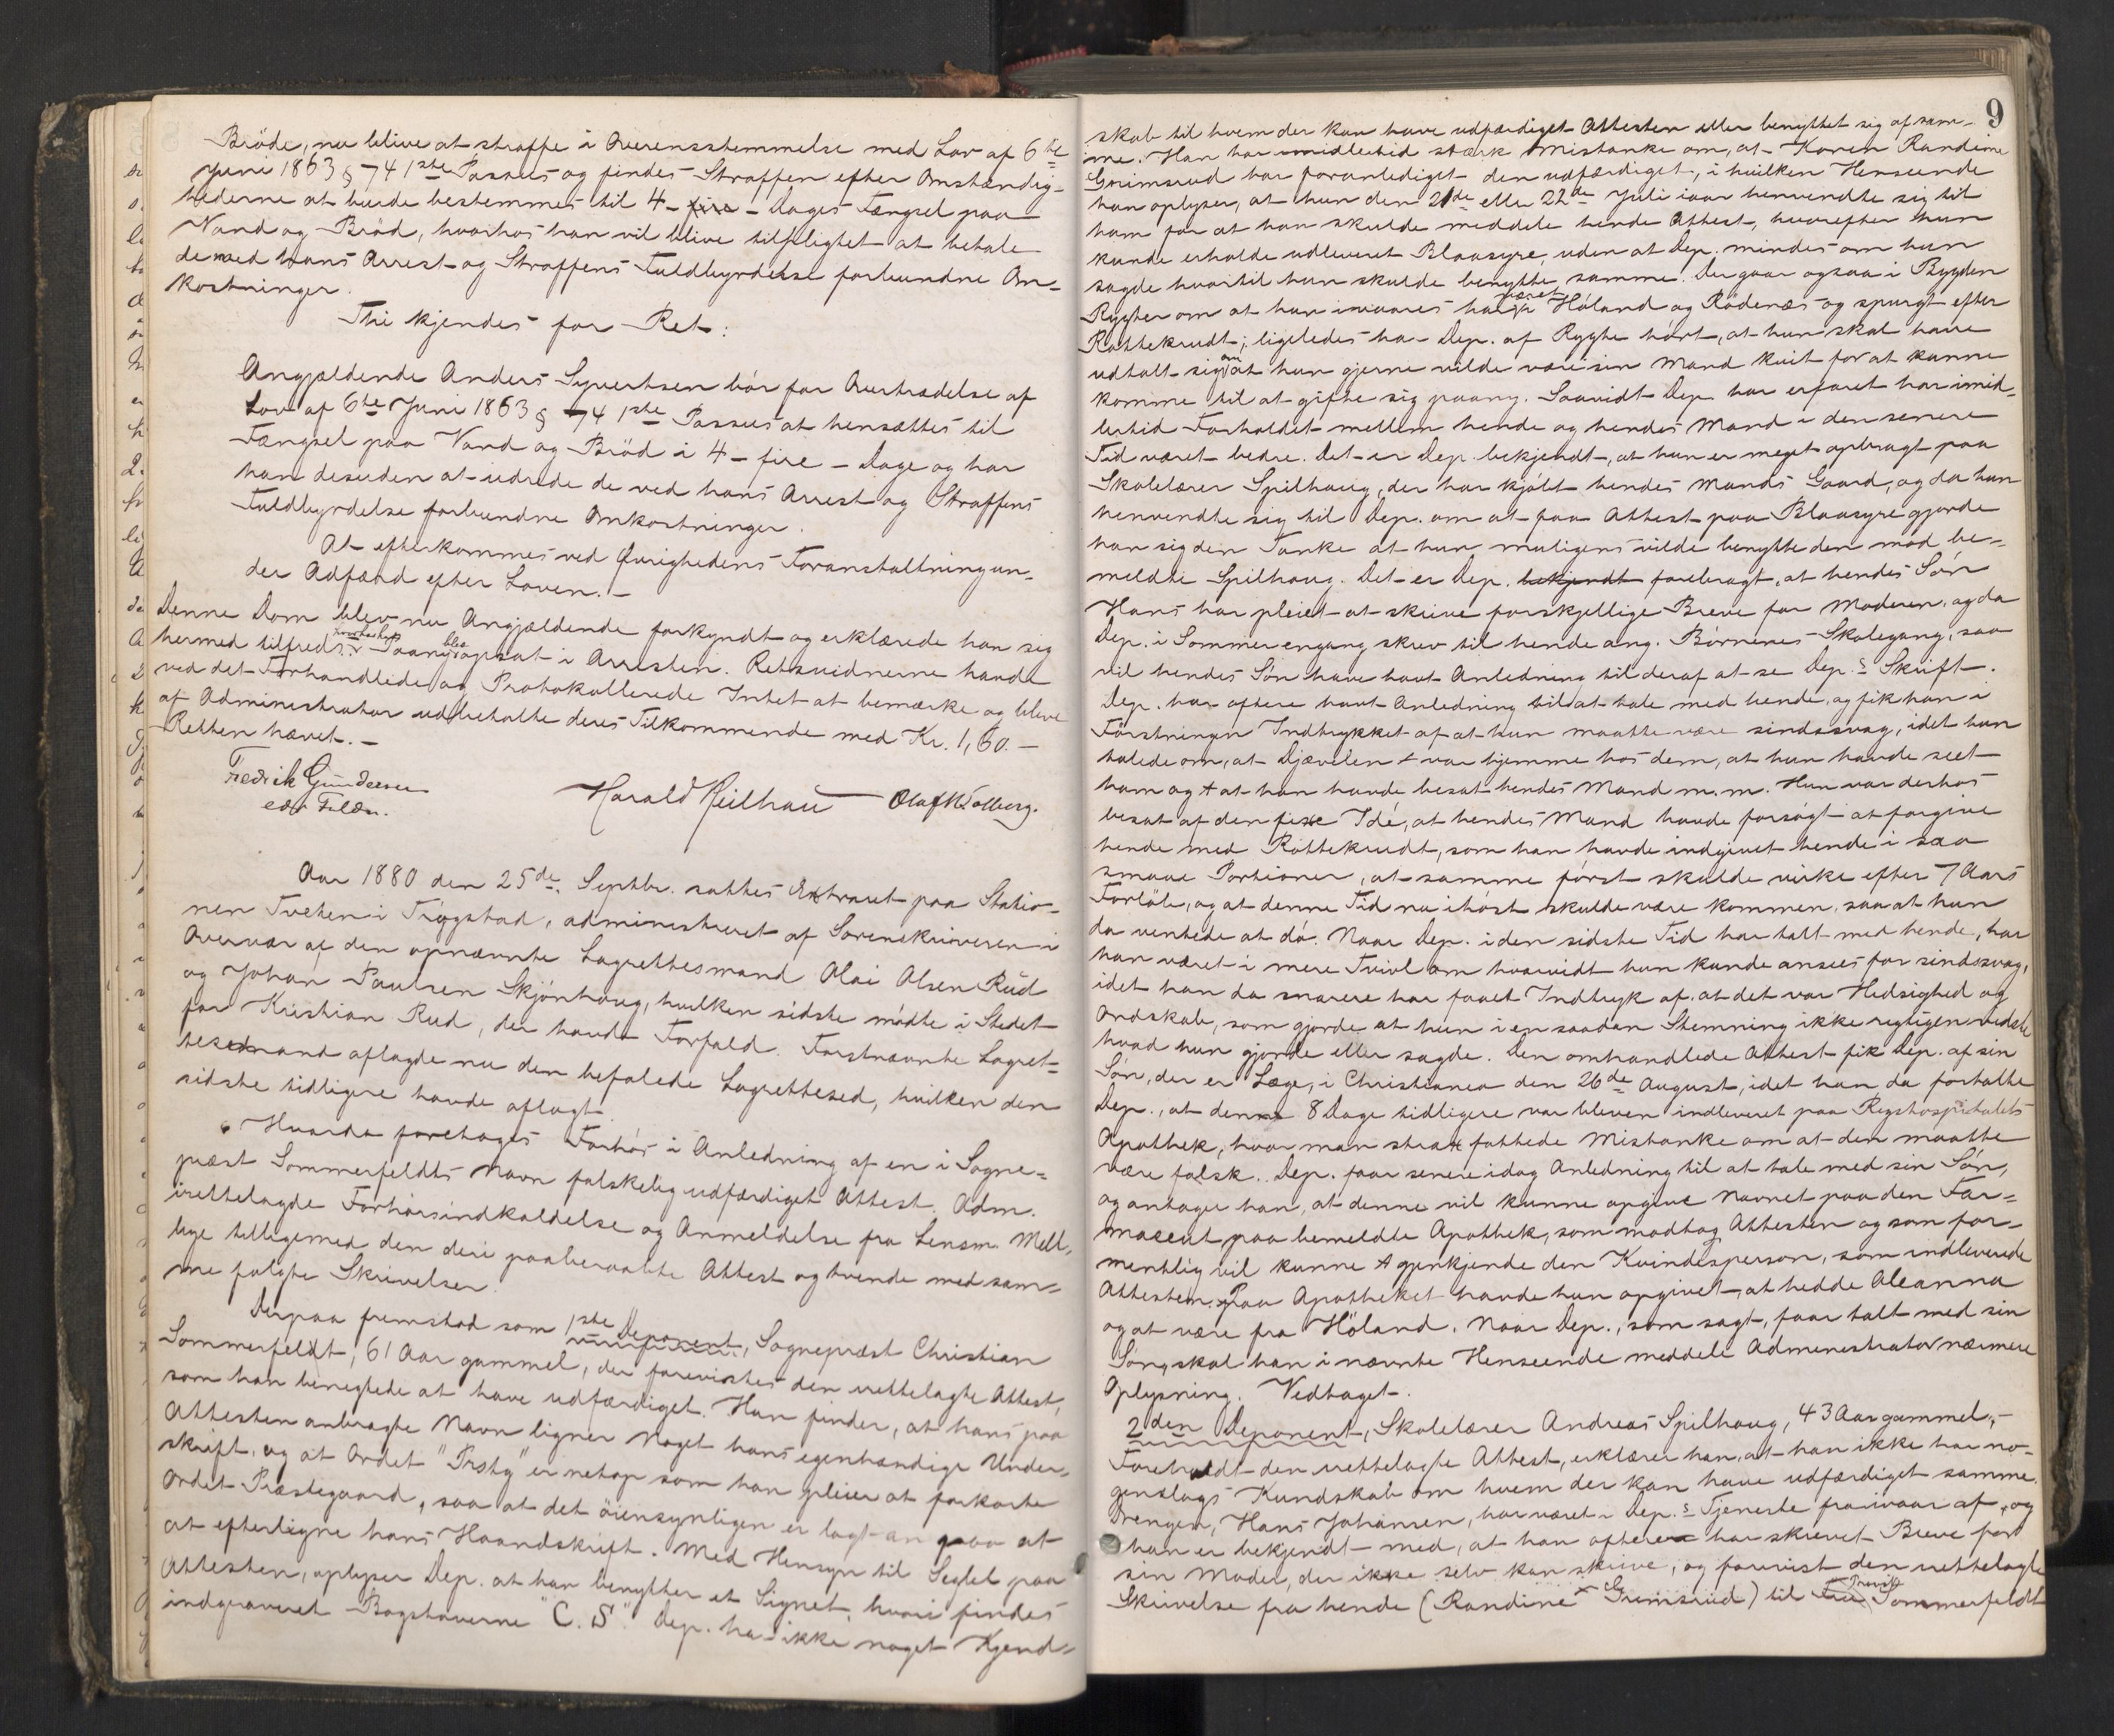 Bröde, nu blive at straffe i Overensstemmelse med Lov af 6te
Juni 1863 § 74 1ste Passus og findes Straffen efter Omstændig-
hederne at burde bestemmes til 4 - fire - Dages Fængsel paa
Vand og Bröd, hvorhos han vil blive tilpligtet at betale
de ved hans Arrest og Straffens Fuldbyrdelse forbundne Om-
kostninger.
Thi kjendes for Ret:
Angjældende Anders Syvertsen bör for Overtrædelse af
Lov af 6te Juni 1863 § 74 1ste Passus at hensættes til
Fængsel paa Vand og Bröd i 4 - fire - Dage og har
han desuden at udrede de ved hans Arrest og Straffens
Fuldbyrdelse forbundne Omkostninger.
At efterkommes ved Øvrighedens Foranstaltning un-
der Adfærd efter Loven. -
Denne Dom blev nu Angjældende forkyndt og erklærede han sig
hermed tilfreds, hvorhos han paany blev opsat i Arresten. Retsvidnerne havde
ved det Forhandlede og Protokollerede Intet at bemærke og bleve
af Administrator udbetalte deres Tilkommende med Kr. 1,60. -
Retten hævet. -
Fredrik Gundersen
Harald Heilhau Olaf Kolberg.
Aar 1880 den 25de Septbr. sattes Extraret paa Statio-
nen Tveten i Trögstad, administreret af Sorenskriveren i
Overvær af den opnævnte Lagrettesmand Olai Olsen Rud
og Johan Paulsen Skjönhaug, hvilken sidste mödte i Stedet
for Kristian Rud, der havde Forfald. Förstnævnte Lagret-
tesmand aflagde nu den befalede Lagrettesed, hvilken den
sidste tidligere havde aflagt.
Hvorda foretoges Forhör i Anledning af en i Sogne-
præst Sommerfeldts Navn falskelig udfærdiget Attest. Adm.
irettelagde Forhörsindkaldelse og Anmeldelse fra Lensm. Mell-
lige tilligemed den deri paaberaabte Attest og tvende med sam-
me fulgte Skrivelser.
Derpaa fremstod som 1ste Deponent, Sognepræst Christian
Sommerfeldt, 61 Aar gammel, der forevistes den irettelagte Attest,
som han benegtede at have udfærdiget. Han finder, at hans paa
Attesten anbragte Navn ligner Noget hans egenhændige Under-
skrift, og at Ordet "Prstg" er netop som han pleier at forkorte
Ordet Præstegaard, saa at det öiensynligen er lagt an paa at
at efterligne hans Haandskrift. Med Hensyn til Seglet paa
Attesten, oplyser Dep. at han benytter et Signet, hvori findes
indgraveret Bogstaverne "C. S." Dep. har ikke noget Kjend-
9
skab til hvem der kan have udfærdiget Attesten eller benyttet sig af sam-
me. Han har imidlertid stærk Mistanke om, at Konen Randine
Grimsrud har foranlediget den udfærdiget, i hvilken Henseende
han oplyser, at hun den 21de eller 22de Juli iaar henvendte sig til
ham for at han skulde meddele hende Attest, hvorefter hun
kunde erholde udleveret Blaasyre, uden at Dep. mindes om hun
sagde hvortil hun skulde benytte samme. Der gaar ogsaa i Bygden
Rygter om at hun ivaares har været i Höland og Rödenæs og spurgt efter
Rottekrudt; ligeledes har Dep. af Rygte hört, at hun skal have
udtalt sig om at hun gjerne vilde være sin Mand kvit for at kunne
komme til at gifte sig paany. Saavidt Dep. har erfaret har imid-
lertid Forholdet mellem hende og hendes Mand i den senere
Tid været bedre. Det er Dep. bekjendt, at hun er meget opbragt paa
Skolelærer Spilhaug, der har kjöbt hendes Mands Gaard, og da hun
henvendte sig til Dep. om at faa Attest paa Blaasyre gjorde
han sig den Tanke at hun muligens vilde benytte den mod be-
meldte Spilhaug. Det er Dep. bekjendt forebragt, at hendes Sön
Hans har pleiet at skrive forskjellige Breve for Moderen, og da
Dep. i Sommer engang skrev til hende ang. Börnenes Skolegang, saa
vil hendes Sön have havt Anledning til deraf at se Dep.s Skrift.
Dep. har oftere havt Anledning til at tale med hende, og fik han i
Förstningen Indtrykket af at hun maatte være sindssvag, idet hun
talede om, at Djævelen var hjemme hos dem, at hun havde seet
ham og at han havde besat hendes Mand m.m. Hun var derhos
besat af den fixe Idé, at hendes Mand havde forsögt at forgive
hende med Rottekrudt, som han havde indgivet hende i saa
smaae Portioner, at samme först skulde virke efter 7 Aars
Forlöb, og at denne Tid nu i höst skulde være kommen, saa at hun
da ventede at dö. Naar Dep. i den sidste Tid har talt med hende, har
han været i mere Tvivl om hvorvidt hun kunde ansees for sindssvag,
idet han da snarere har faaet Indtryk af at det var Hidsighed og
Ondskab, som gjorde at hun i en saadan Stemning ikke rigtigen vidste
hvad hun gjorde eller sagde. Den omhandlede Attest fik Dep. af sin
Sön, der er Læge, i Christiania den 26de August, idet han da fortalte
Dep., at denne 8 Dage tidligere var bleven indleveret paa Rigshospitalets
Apothek, hvor man strax fattede Mistanke om at den maatte
være falsk. Dep. faar senere idag Anledning til at tale med sin Sön,
og antager han, at denne vil kunne opgive Navnet paa den Far-
maceut paa bemeldte Apothek, som modtog Attesten og som for-
mentlig vil kunne gjenkjende den Kvindesperson, som indleverede
Attesten. Paa Apotheket havde hun opgivet at hedde Oleanna
og at være fra Höland. Naar Dep., som sagt, faar talt med sin
Sön, skal han i nævnte Henseende meddele Administrator nærmere
Oplysning. Vedtaget.
2den Deponent, Skolelærer Andreas Spilhaug, 43 Aar gammel, -
Foreholdt den irettelagte Attest, erklærer han, at han ikke har no-
genslags Kundskab om hvem der kan have udfærdiget samme.
Drengen, Hans Johansen, har været i Dep.s Tjeneste fra ivaar af, og
han er bekjendt med, at han oftere har skrevet Breve for
sin Moder, der ikke selv kan skrive, og forevist den irettelagte
Skrivelse fra hende (Randine Grimsrud) til Provst Sommerfeldt